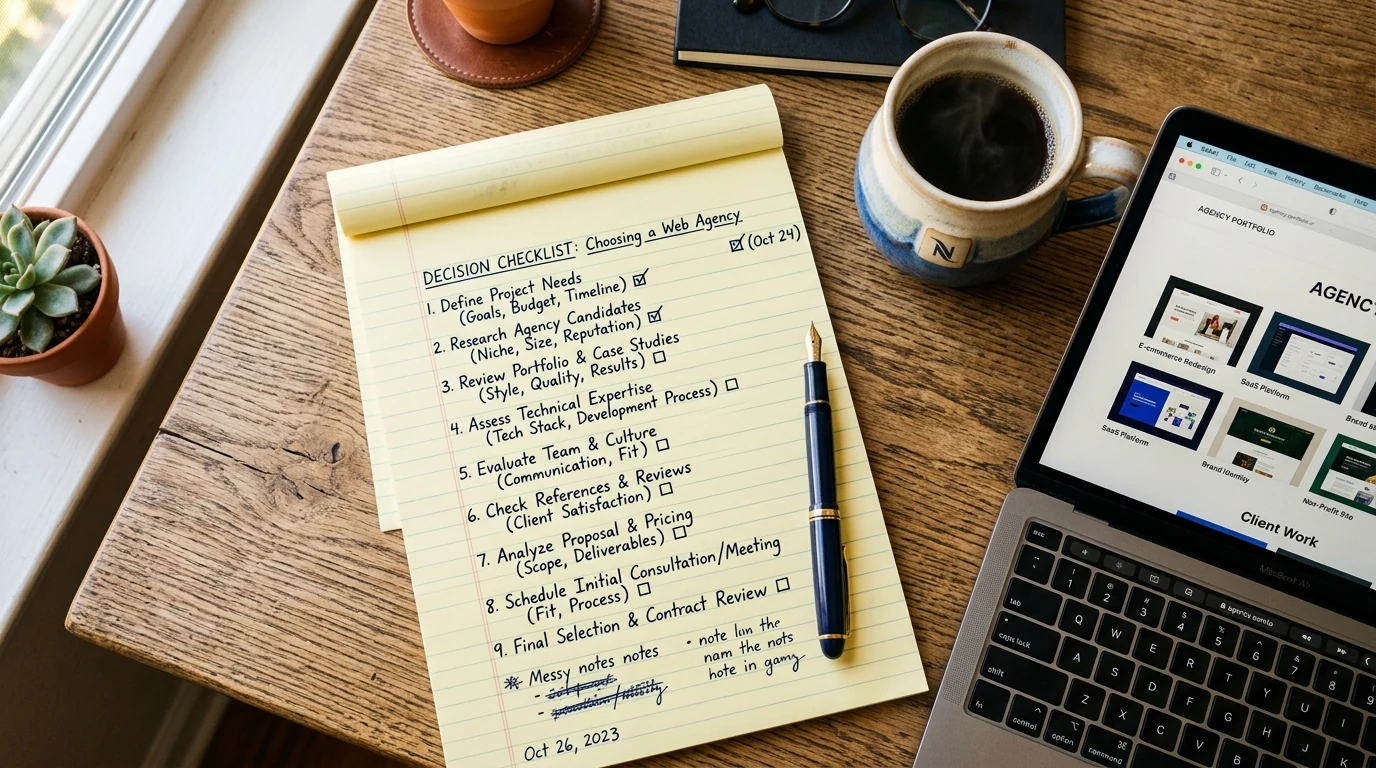 DECISION CHECKLIST: Choosing a Web Agency
☑ (Oct 24)
1. Define Project Needs
(Goals, Budget, Timeline) ☑
2. Research Agency Candidates
(Niche, Size, Reputation) ☑
3. Review Portfolio & Case Studies
(Style, Quality, Results) ☐
4. Assess Technical Expertise
(Tech Stack, Development Process) ☐
5. Evaluate Team & Culture
(Communication, Fit) ☐
6. Check References & Reviews
(Client Satisfaction) ☐
7. Analyze Proposal & Pricing
(Scope, Deliverables) ☐
8. Schedule Initial Consultation/Meeting
(Fit, Process) ☐
9. Final Selection & Contract Review ☐
* Messy notes notes
• note in the
nam the nots
hote in
Oct 26, 2023
N
AGENCY PORTFOLIO
AGENC
E-commerce Redesign
SaaS Platform
SaaS Platform
Brand Identity
Non-Profit Site
Client Work
MacBook Air
esc
! 1 @ 2 # 3 $ 4 % 5 ^ 6 & 7 * 8 ( 9
tab Q W E R T Y U I
caps lock A S D F G H J K
shift Z X C V B N M
fn control option command